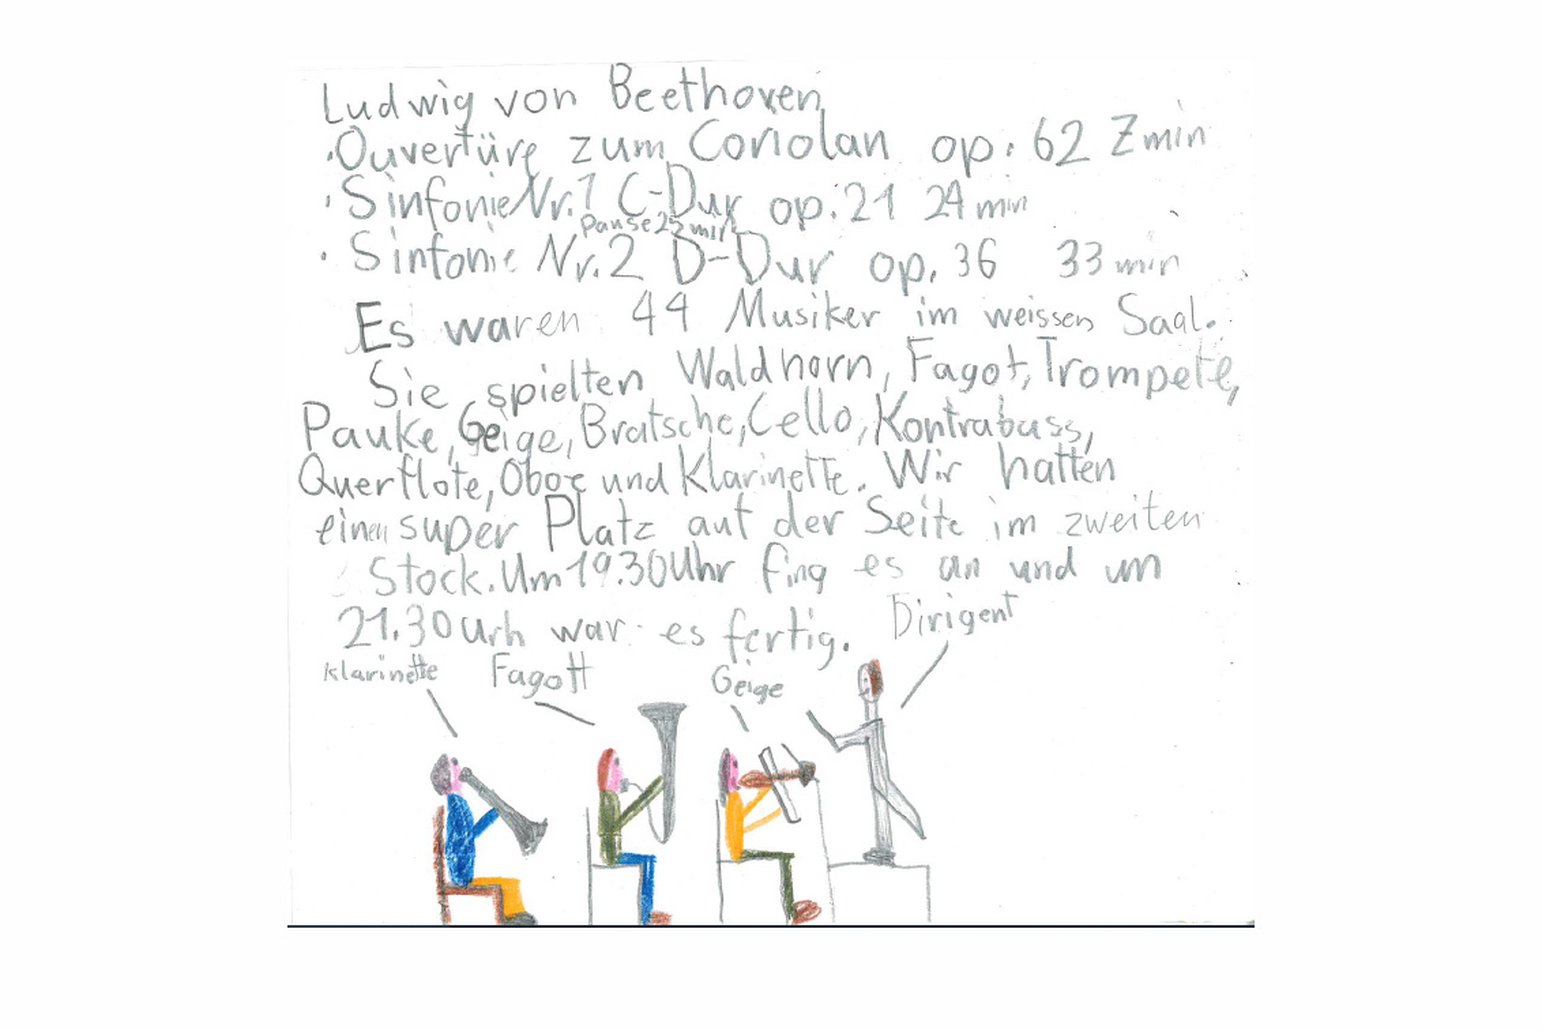 Ludwig von Beethoven
· Ouvertüre zum Coriolan op. 62 7 min
· Sinfonie Nr. 1 C-Dur op. 21 24 min
Pause 25 min
· Sinfonie Nr. 2 D-Dur op. 36 33 min
Es waren 44 Musiker im weissen Saal.
Sie spielten Waldhorn, Fagot, Trompete,
Pauke, Geige, Bratsche, Cello, Kontrabass,
Querflöte, Oboe und Klarinette. Wir hatten
einen super Platz auf der Seite im zweiten
Stock. Um 19.30 Uhr fing es an und um
21.30 urh war es fertig.
Dirigent
Klarinette Fagott Geige